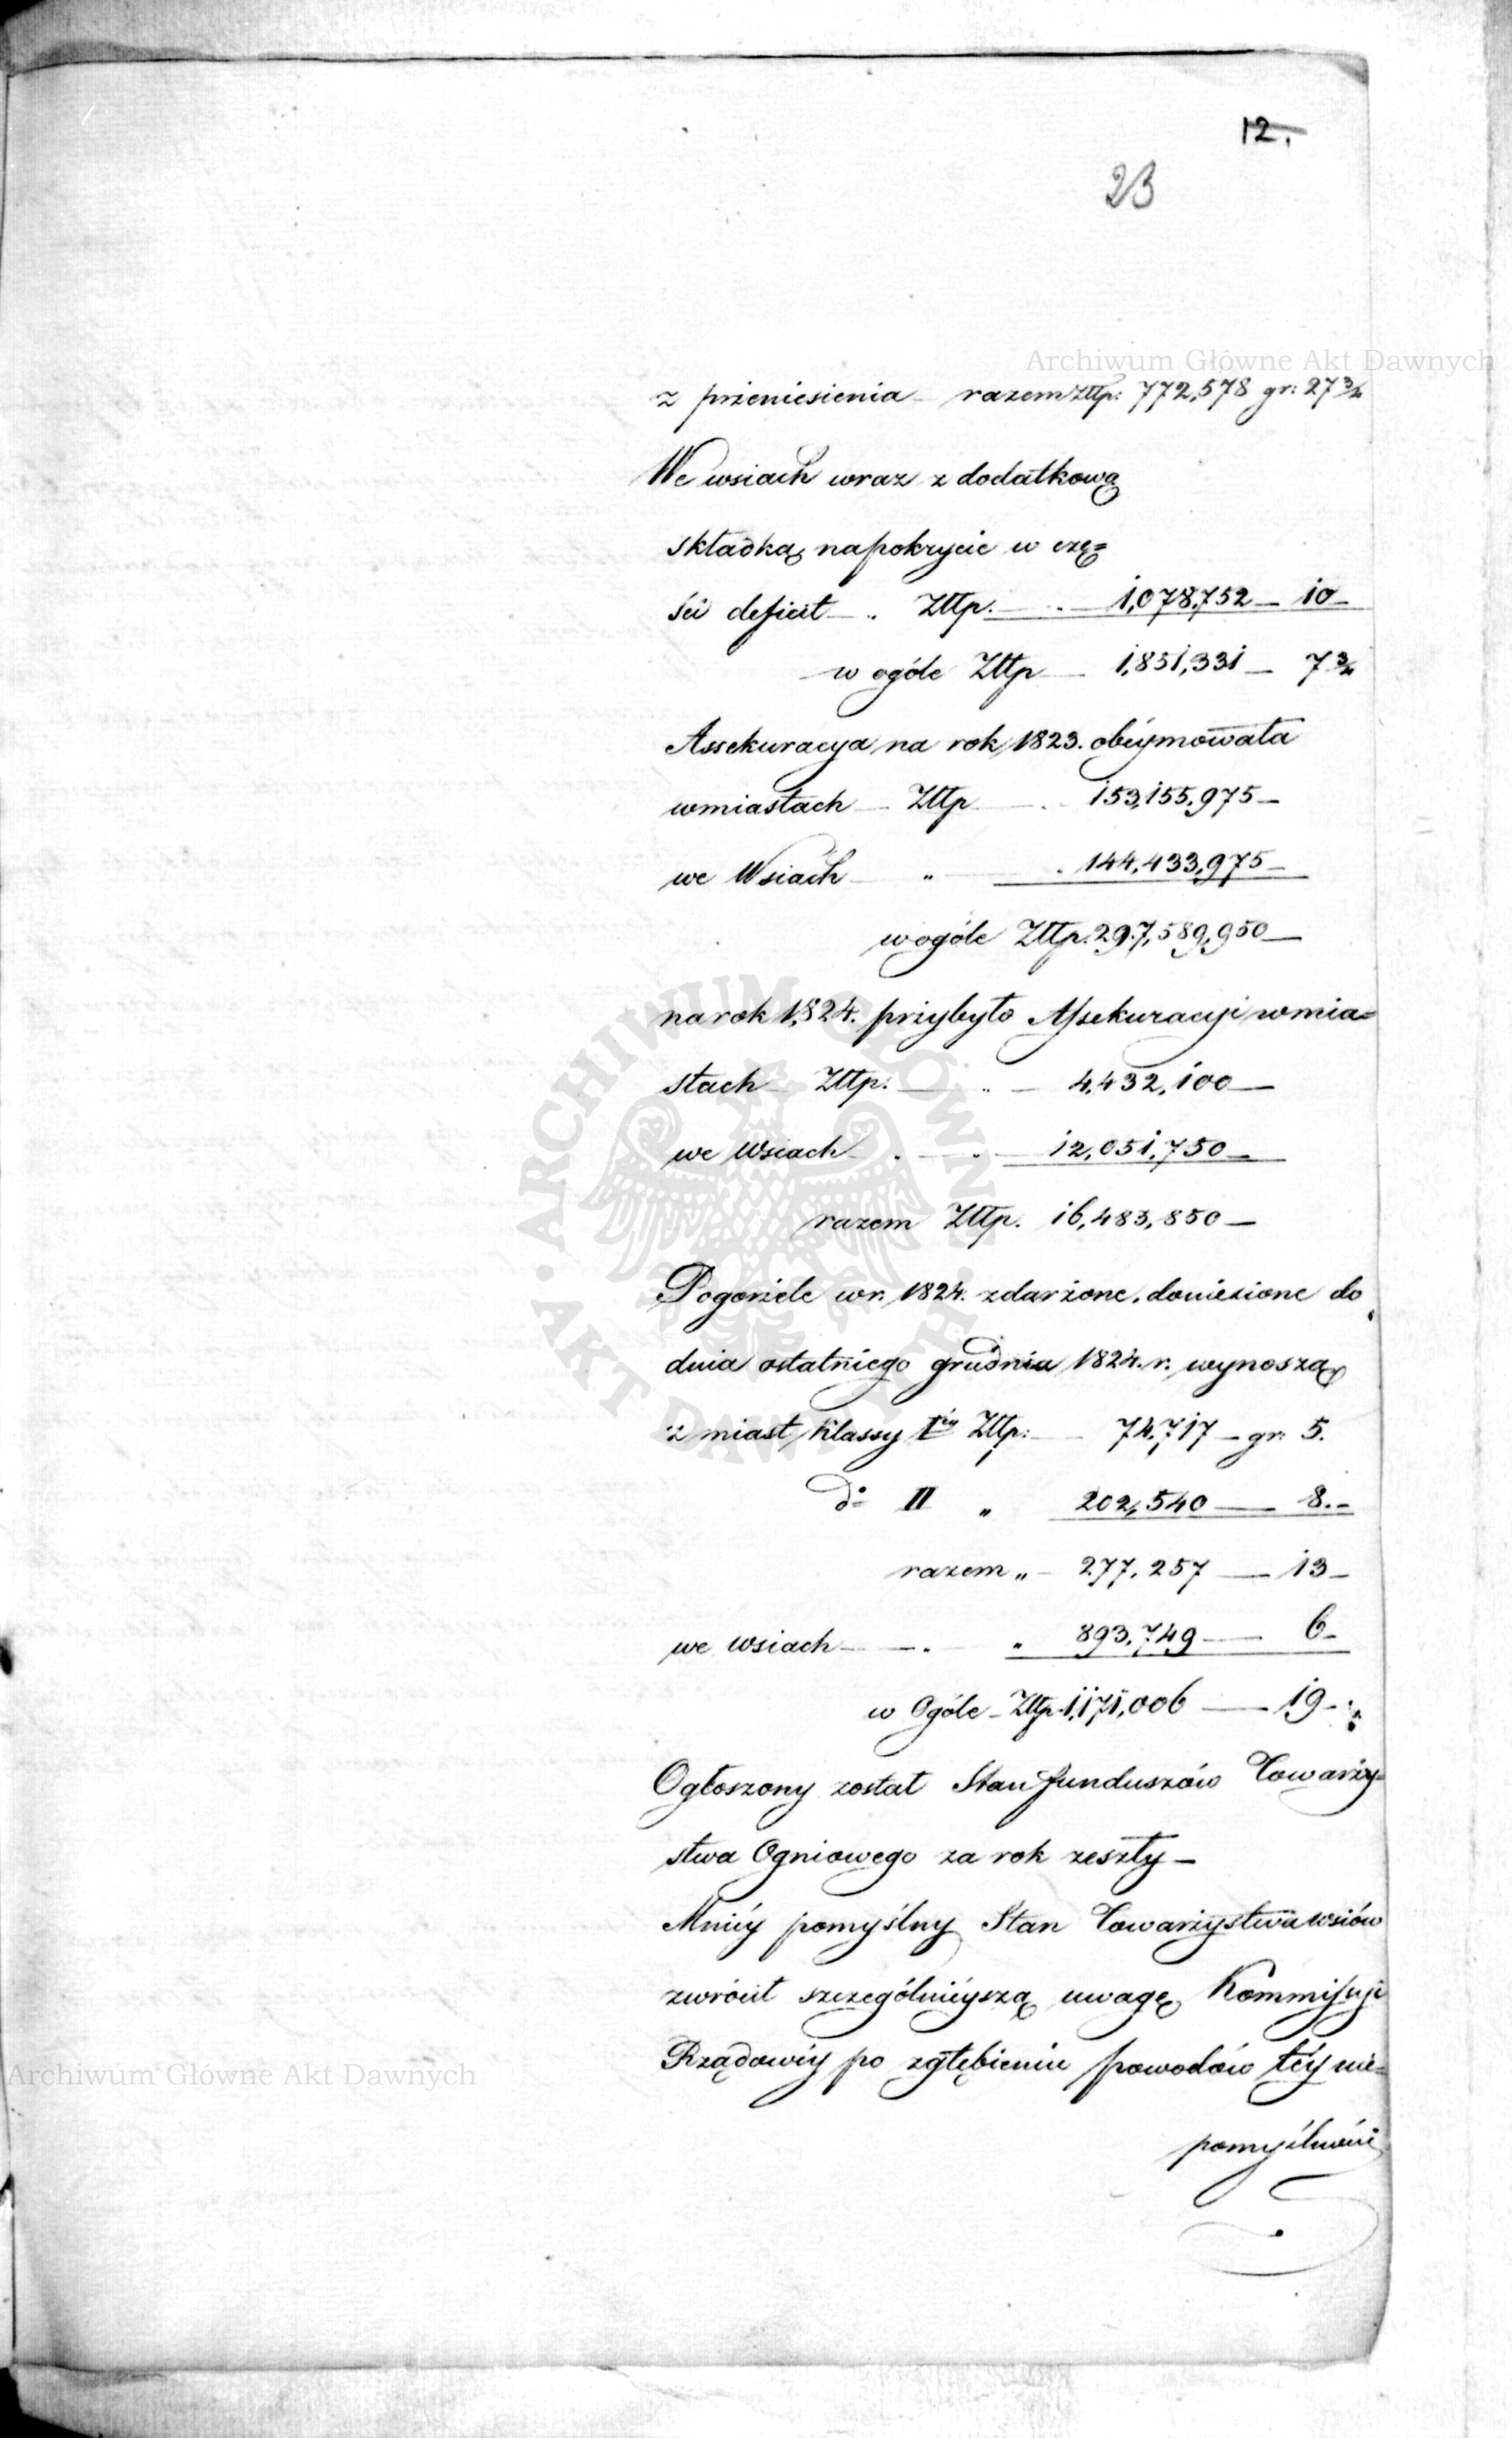 12.
23
Archiwum Główne Akt Dawnych
z przeniesienia – razem Złtp: 772,578 gr: 27 3/4
We wsiach wraz z dodatkową
składką na pokrycie w czę=
ści deficit – . Złtp. – . – 1,078,752 – 10 –
w ogóle Złtp – 1,851,331 – 7 3/4
Assekuracya na rok 1823. obeymowała
w miastach – Złtp – . 153,155,975 –
we Wsiach – „ – . 144,433,975 –
w ogóle Złtp. 297,589,950 –
na rok 1824. przybyło Assekuracyi w mia=
stach – Złtp. – „ – 4,432,100 –
we Wsiach – . – „ – 12,051,750 –
razem Złtp. 16,483,850 –
Pogorzele w r. 1824. zdarzone, doniesione do
dnia ostatniego grudnia 1824. r. wynoszą
z miast klassy Iéy Złtp: – 74,717 – gr: 5.
do II „ 202,540 – 8. –
razem „ – 277,257 – 13 –
we wsiach – – . – „ 893,749 – 6 –
w Ogóle – Złtp. 1,171,006 – 19 – .
Ogłoszony został Stan funduszów Towarzy=
stwa Ogniowego za rok zeszły –
Mniéy pomyślny Stan Towarzystwa wsiów
zwrócił szczególnieyszą uwagę Kommissyi
Rządowéy po zgłębieniu powodów téy nie=
pomyślności
Archiwum Główne Akt Dawnych
ARCHIWUM GŁÓWNE AKT DAWNYCH